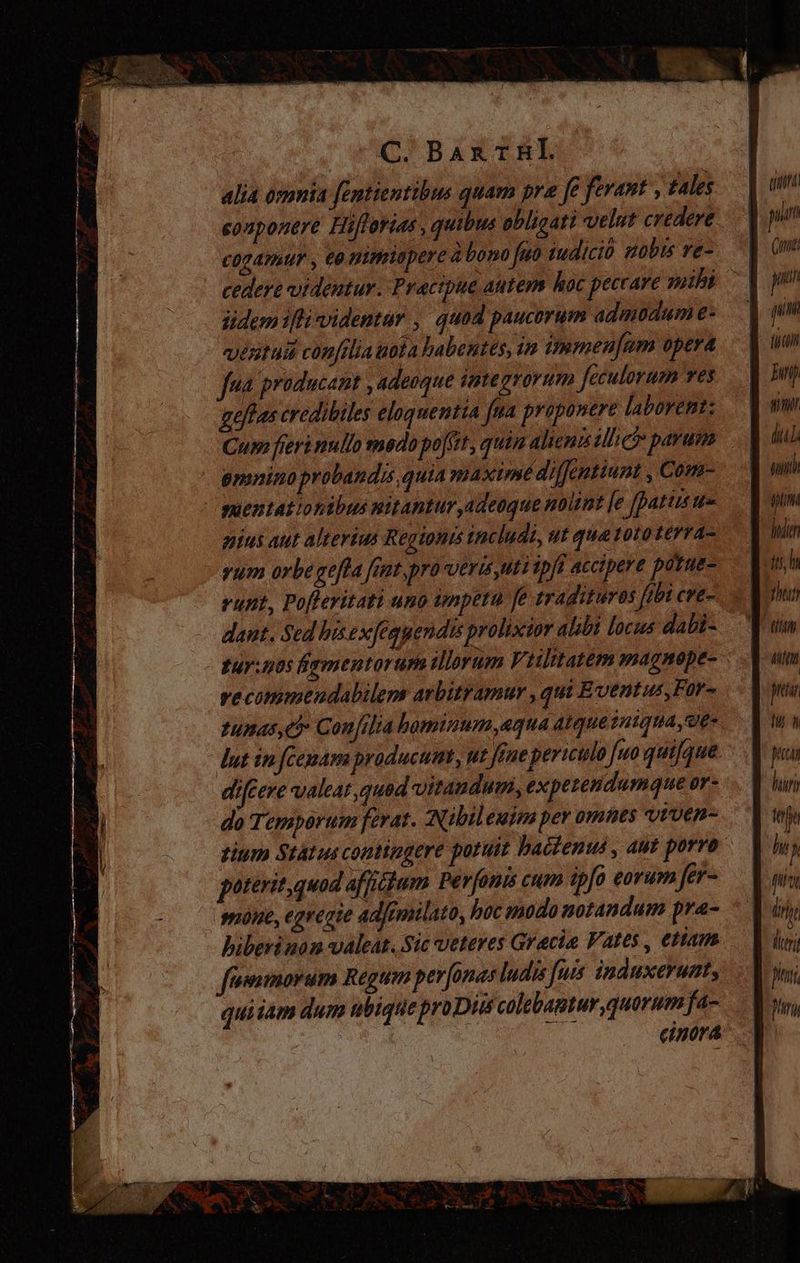 C. BARTHI.
alia omnia ſentientibus quam præ ſe ferant, tales
componere Hiſtorias, quibus obligati velut credere
cogamur, eo nimiopere à bono ſuo iudiciò nobis re-
cedere videntur. Præcipue autem hoc peccare mihi
iidem iſti videntur, quod paucorum admodum e-
ventuũ conſilia nota habentes, in immenſum opera
ſua producant, adeoque integrorum ſeculorum res
geſtas credibiles eloquentia ſua proponere laborent:
Cum fieri nullo modo poſſit, quin alienis illic & parum
omnino probandis, quia maximè diſſentiunt, Com-
mentationibus nitantur, adeoque nolint ſe ſpatiis u-
nius aut alterius Regionis includi, ut quæ toto terra-
rum orbe geſta ſint, pro veris, uti ipſi accipere potue-
runt, Poſteritati uno impetu ſe tradituros ſibi cre-
dant. Sed his exſequendis prolixior alibi locus dabi-
tur: nos figmentorum illorum Vtilitatem magnope-
re commendabilem arbitramur, qui Eventus, For-
tunas, & Conſilia hominum, æqua atque iniqua, ve-
lut in ſcenam producunt, ut ſine periculo ſuo quiſque
diſcere valeat, quod vitandum, expetendumque or-
do Temporum ferat. Nihil enim per omnes viven-
tium Status contingere potuit hactenus, aut porro
poterit, quod affictum Perſonis cum ipſo eorum ſer-
mone, egregie adſimilato, hoc modo notandum præ-
hiberi non valeat. Sic veteres Græciæ Vates, etiam
ſummorum Regum perſonas ludis ſuis induxerunt,
qui iam dum ubique pro Diis colebantur, quorum fa-
cinora